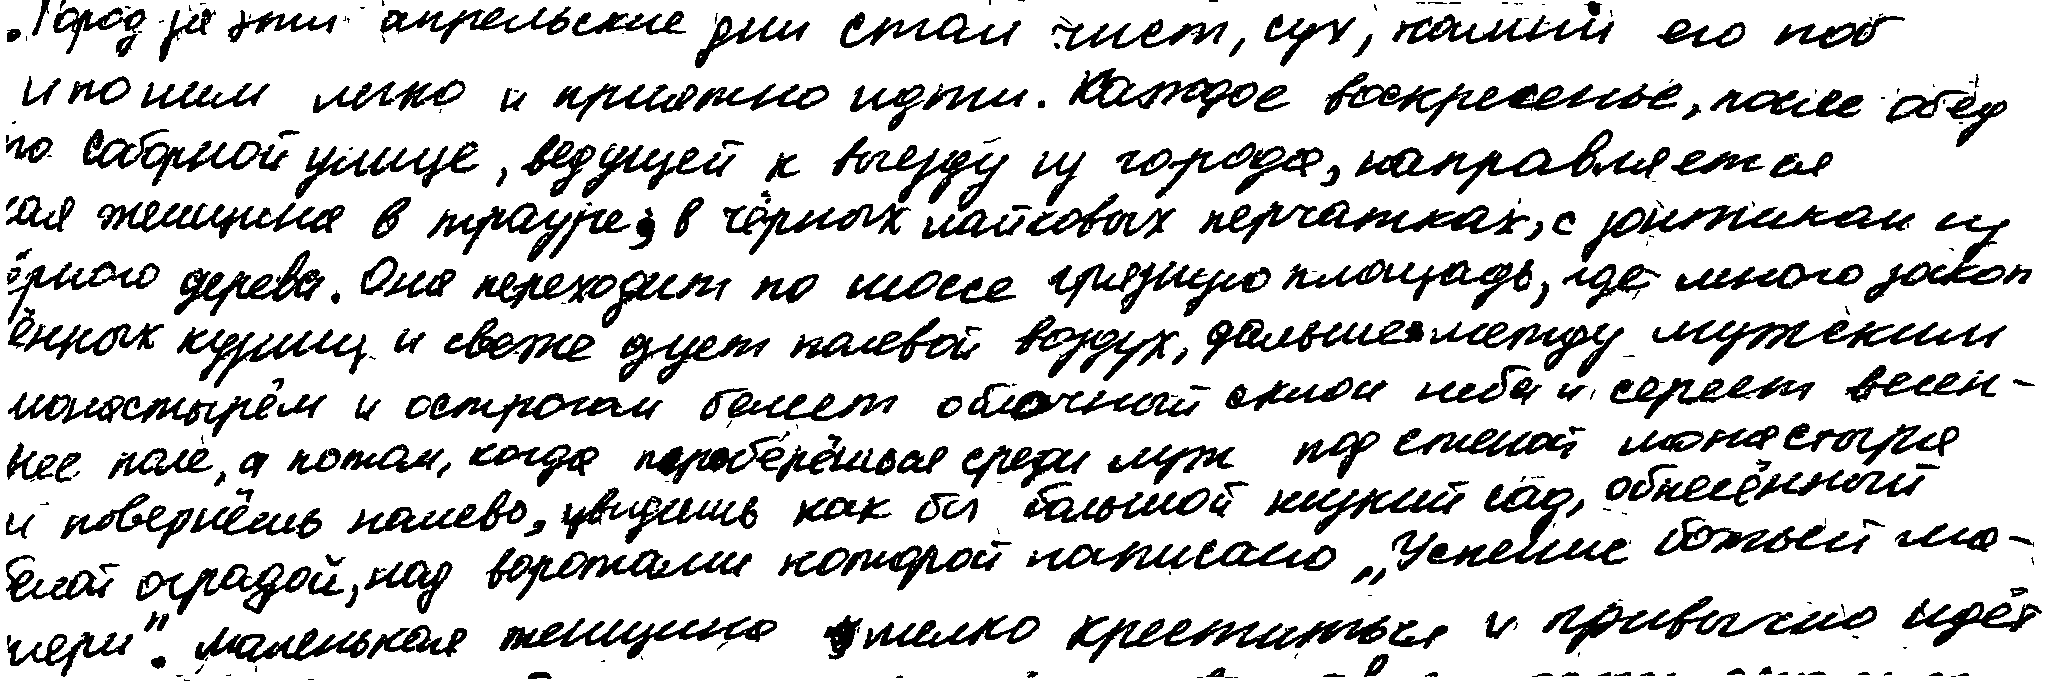 Город за эти апрельские дни стал чист, сух, камни его поб
и по ним легко и приятно идти. Каждое воскресенье, после обед
по Соборной улице, ведущей к выезду из города, направляется
кая женщина в трауре, в чёрных лайковых перчатках, с зонтиком из
ёрного дерева. Она переходит по шоссе грязную площадь, где много закоп
ённых кузниц и свеже дует полевой воздух, дальше между мужским
монастырём и острогом белеет облачный склон неба и сереет весен-
нее поле, а потом, когда проберёшься среди луж под стеной монастыря
и повернёшь налево, увидишь как бы большой низкий сад, обнесённый
белой оградой, над воротами которой написано „Успение божьей ма-
тери". Маленькая женщина мелко креститься и привычно идёт